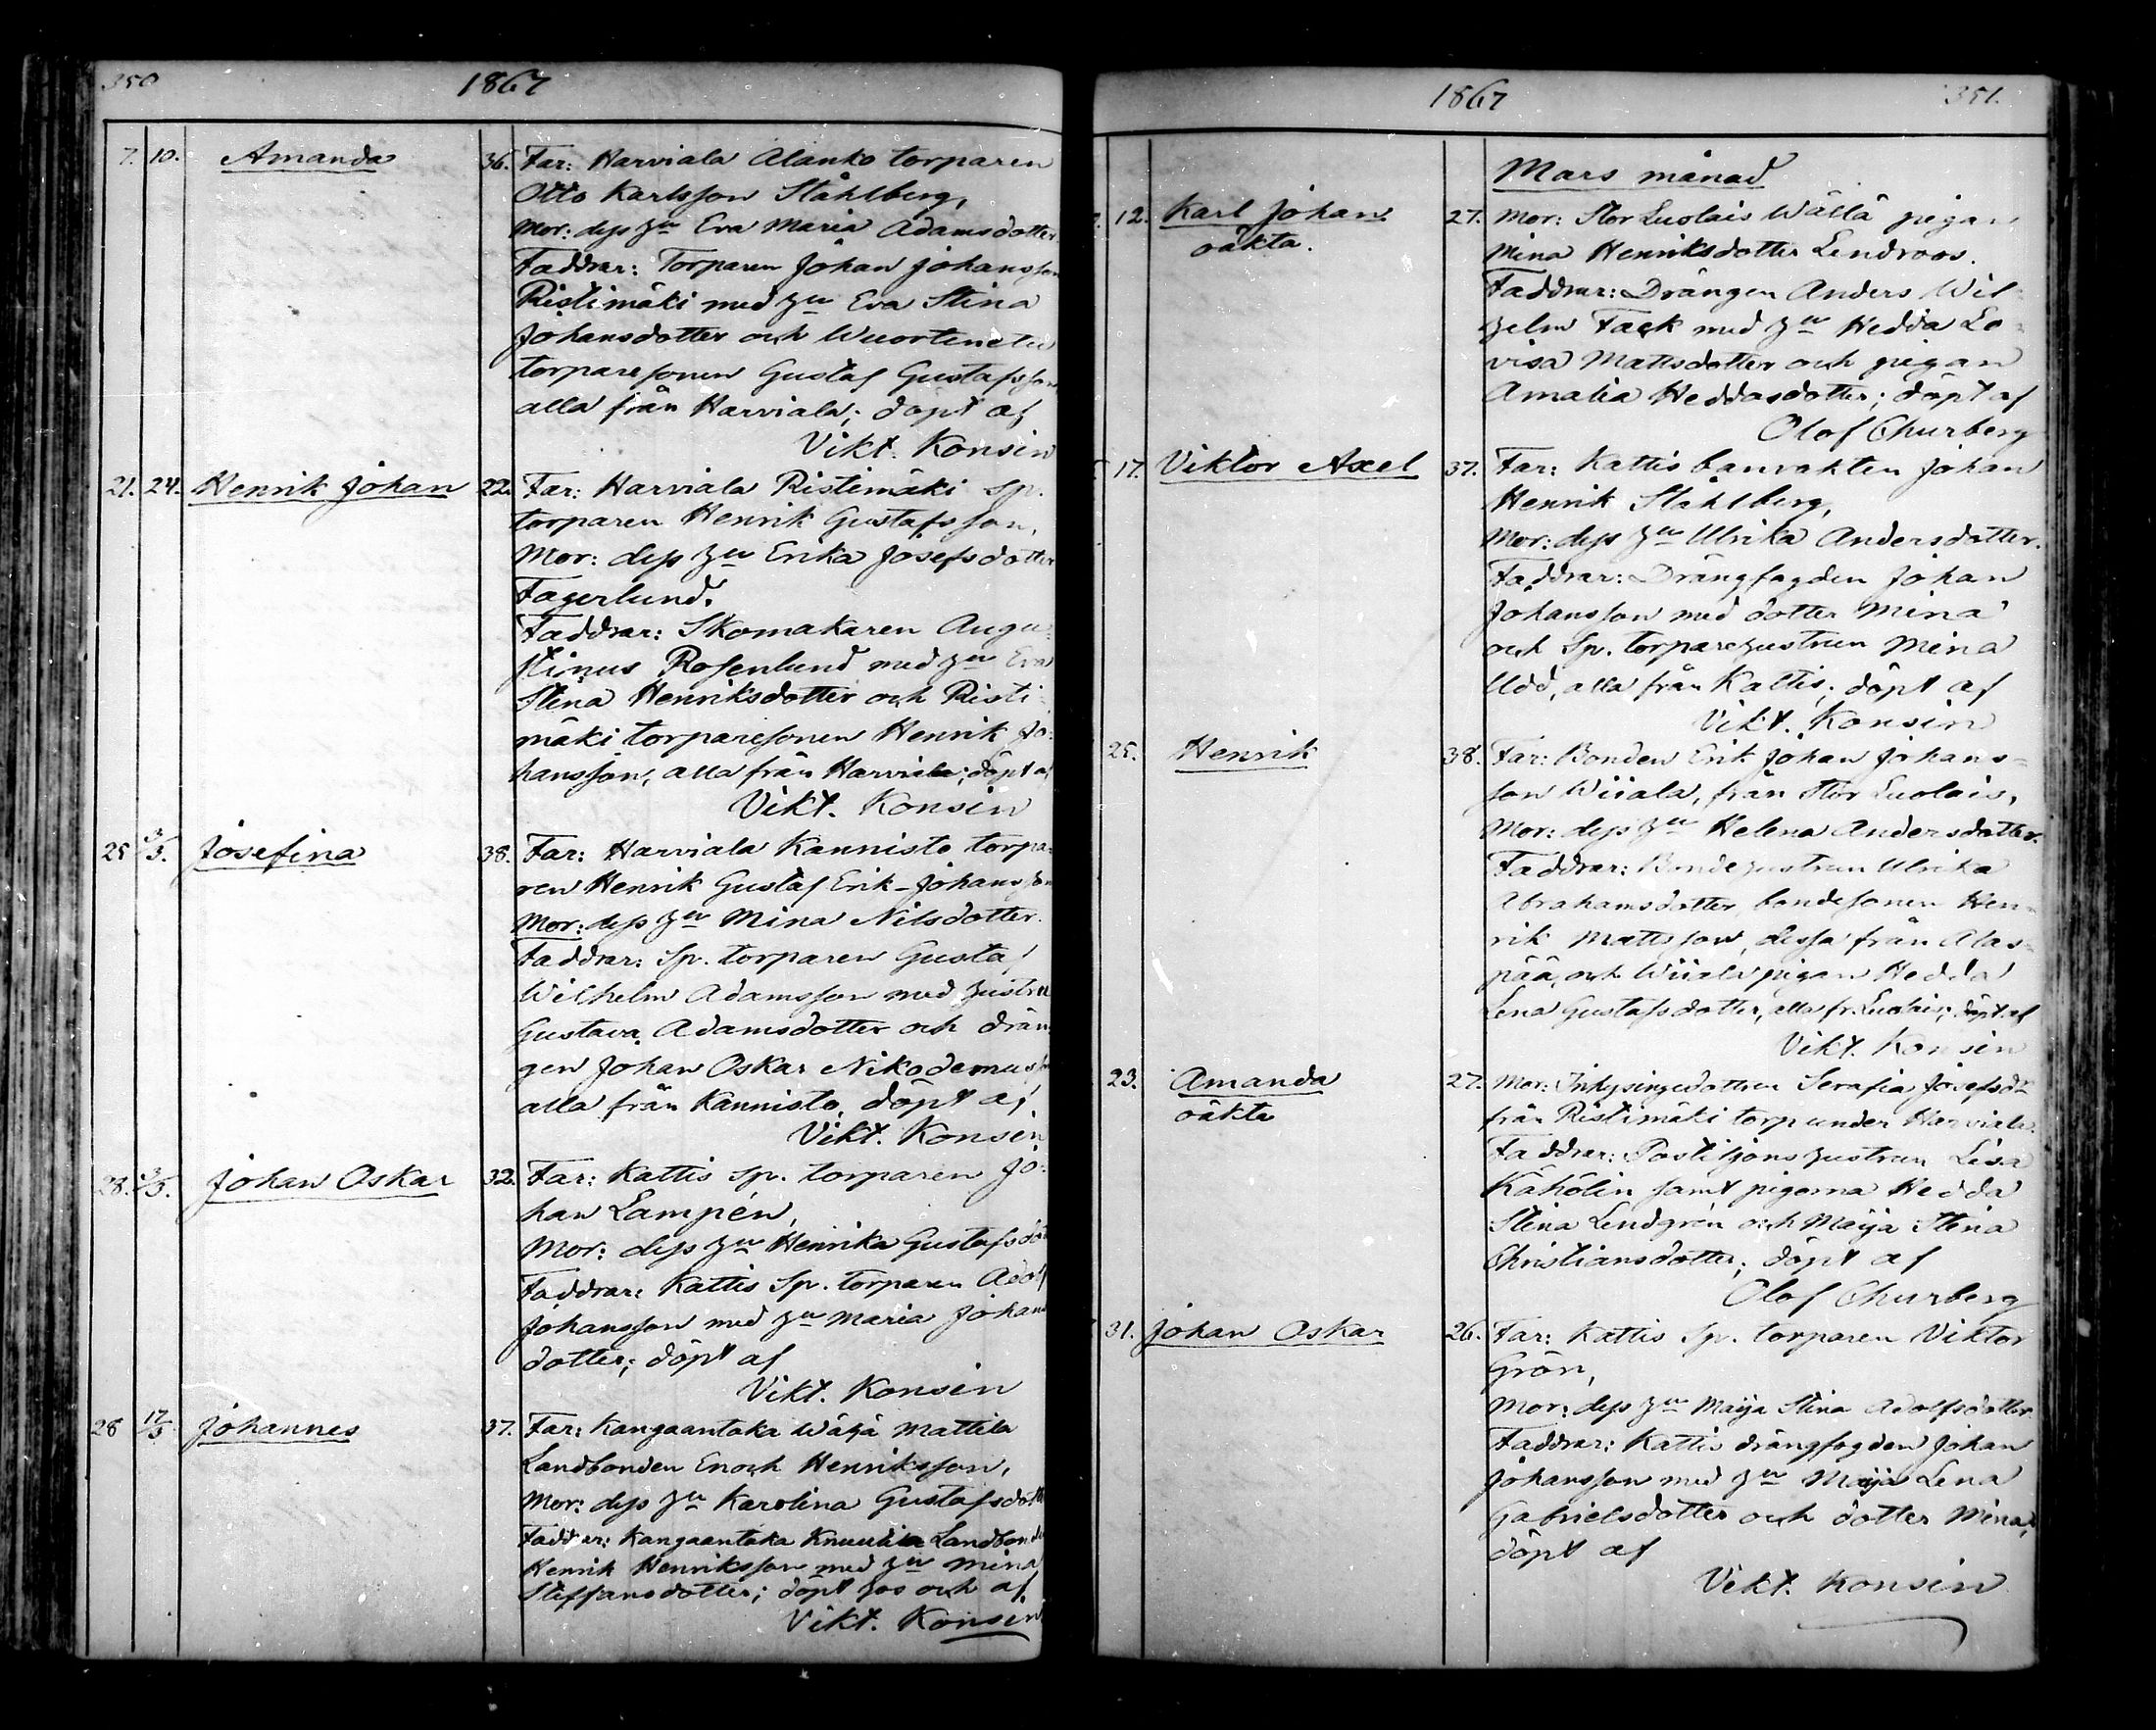 350 1867
7. 10. Amanda 36. Far: Harviala Alanko torparen
Otto Karlsson Ståhlberg,
Mor: dess hu Eva Maria Adamsdotter
Faddrar: Torparen Johan Johansson
Ristimäki med hu Eva Stina
Johansdotter och
torparesonen Gustaf Gustafsson
alla från Harviala; döpt af
Vikt. Konsin
21. 24. Henrik Johan 22. Far: Harviala Ristimäki sp.
torparen Henrik Gustafsson,
Mor: dess hu Erika Josefsdotter
Fagerlund.
Faddrar: Skomakaren Augu-
stinus Rosenlund med hu Eva
Stina Henriksdotter och Risti-
mäki torparesonen Henrik Jo-
hansson, alla från Harviala; döpt af
Vikt. Konsin
25 3/3. Josefina 38. Far: Harviala Kannisto torpa-
ren Henrik Gustaf Erik-Johansson
Mor: dess hu Mina Nilsdotter.
Faddrar: Sp. torparen Gustaf
Wilhelm Adamsson med hustru
Gustava Adamsdotter och drän-
gen Johan Oskar Nikodemusson
alla från Kannisto, döpt af
Vikt. Konsin
28. 3/3. Johan Oskar 32. Far: Kattis sp. torparen Jo-
han Lampén,
Mor: dess hu Henrika Gustafsdot
Faddrar: Kattis Sp. torparen Adolf
Johansson med hu Maria Johans
dotter; döpt af
Vikt. Konsin
28 17/3 Johannes 37. Far: Kangaantaka Mattila
Landbonden Enoch Henriksson,
Mor: dess hu Karolina Gustafsdott
Faddrar: Kangaantaka Landbonden
Henrik Henriksson med hu Mina
Steffansdotter; döpt hos och af
Vikt. Konsin
1867 351.
Mars månad
12. Karl Johan 27. Mor: Stor Luolais Wällä pigan
oäkta. Mina Henriksdotter Lendroos.
Faddrar: Drängen Anders Wil-
helm Tack med hu Hedda Lo-
visa Mattsdotter och pigan
Amalia Heddasdotter; döpt af
Olof Churberg
17. Viktor Axel 37. Far: Kattis banvakten Johan
Henrik Ståhlberg,
Mor: dess hu Ulrika Andersdotter.
Faddrar: Drängfogden Johan
Johansson med dotter Mina
och Sp. torparehustrun Mina
Udd, alla från Kattis; döpt af
Vikt. Konsin
25. Henrik 38. Far: Bonden Erik Johan Johans-
son Wiiala, från Stor Luolais,
Mor: dess hu Helena Andersdotter.
Faddrar: Bondehustrun Ulrika
Abrahamsdotter, bondesonen Hen-
rik Mattsson, dessa från Alas-
pää, och Wiiala pigan Hedda
Lena Gustafsdotter, alla fr. Luolais; döpt af
Vikt. Konsin
23. Amanda 27. Mor: Inhysingedottren Serafia Josefsdr
oäkta från Ristimäki torp under Harviala.
Faddrar: Postiljonshustrun Lisa
Kähölin samt pigorna Hedda
Stina Lendgrén och Maija Stina
Christiansdotter; döpt af
Olof Churberg
31. Johan Oskar 26. Far: Kattis Sp. torparen Viktor
Grön,
Mor: dess hu Maija Stina Adolfsdotter.
Faddrar: Kattis drängfogden Johan
Johansson med hu Maija Lena
Gabrielsdotter och dotter Mina;
döpt af
Vikt. Konsin